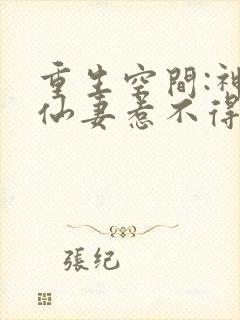 重生空間:神
仙妻惹不得
張紀